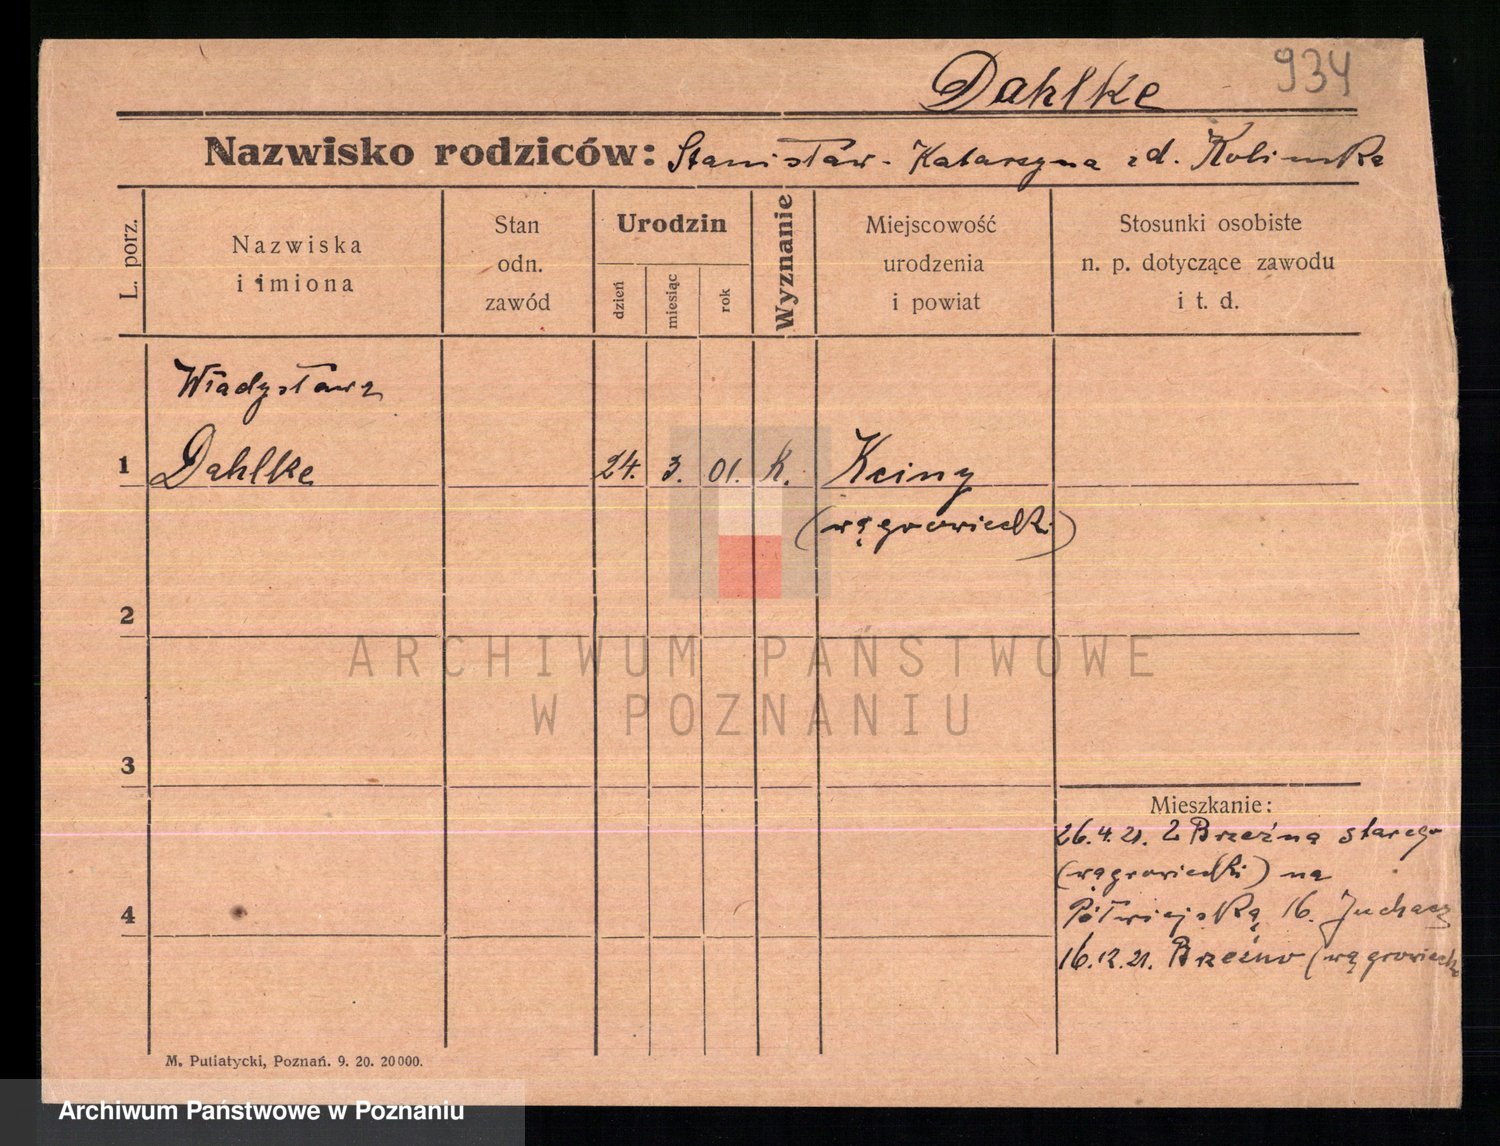 Dahlke 934
Nazwisko rodziców: Stanisław - Katarzyna zd. Kolimska
L. porz.
Nazwiska
i imiona
Stan
odn.
zawód
Urodzin
dzień
miesiąc
rok
Wyznanie
Miejscowość
urodzenia
i powiat
Stosunki osobiste
n. p. dotyczące zawodu
i t. d.
Władysława
1 Dahlke 24. 3. 01. k. Kciny
(wągrowiecki)
2
ARCHIWUM PAŃSTWOWE
W POZNANIU
3
Mieszkanie:
26.4.21. z Brzeźna starego
(wągrowiecki) na
4
Półwiejską 16. Juchacz
16.12.21. Brzeźno (wągrowiecki
M. Putiatycki, Poznań. 9. 20. 20000.
Archiwum Państwowe w Poznaniu